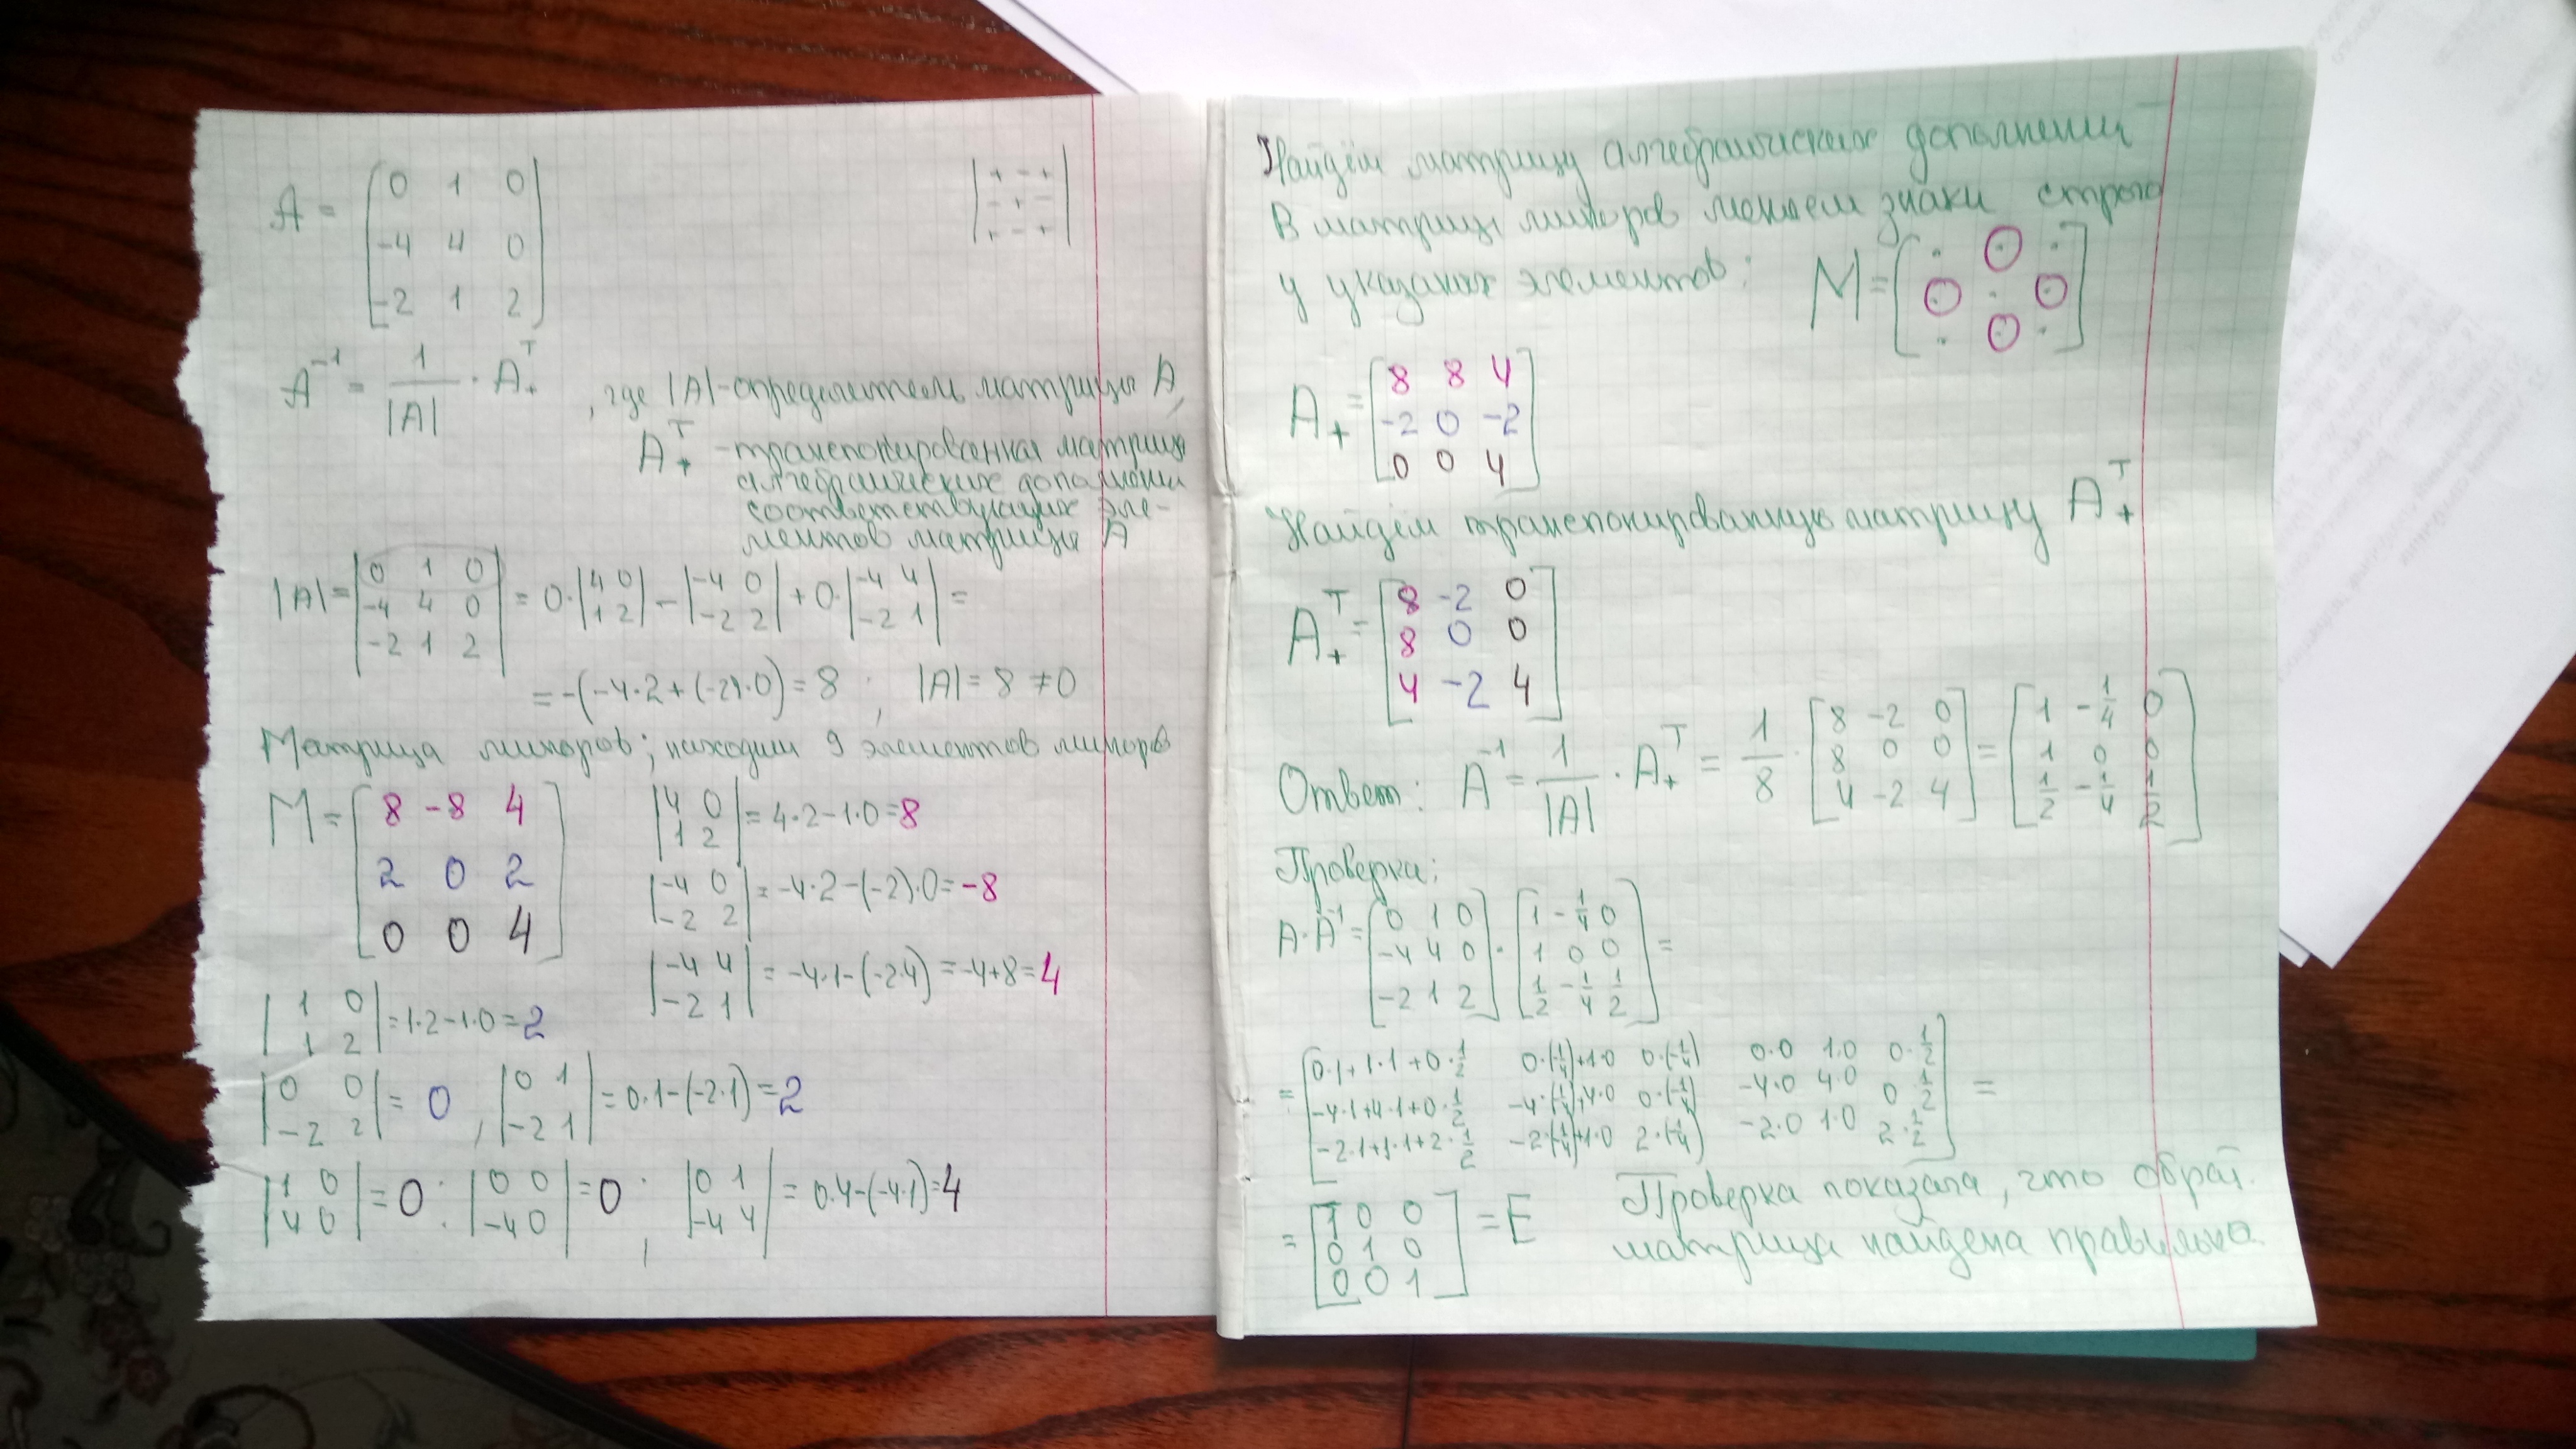 A = [0 1 0
-4 4 0
-2 1 2]
|+ - +
- + -
+ - +|
A⁻¹ = 1/|A| · A₊ᵀ, где |A| - определитель матрицы A,
A₊ᵀ - транспонированная матрица
алгебраических дополнений
соответствующих эле-
ментов матрицы A
|A| = |0 1 0; -4 4 0; -2 1 2| = 0·|4 0; 1 2| - |-4 0; -2 2| + 0·|-4 4; -2 1| =
= -(-4·2+(-2)·0) = 8 ; |A| = 8 ≠ 0
Матрица миноров; находим 9 элементов миноров
M = [8 -8 4
2 0 2
0 0 4]
|4 0; 1 2| = 4·2-1·0=8
|-4 0; -2 2| = -4·2-(-2)·0=-8
|-4 4; -2 1| = -4·1-(-2·4)=-4+8=4
|1 0; 1 2| = 1·2-1·0=2
|0 0; -2 2| = 0, |0 1; -2 1| = 0·1-(-2·1)=2
|1 0; 4 0| = 0; |0 0; -4 0| = 0; |0 1; -4 4| = 0·4-(-4·1)=4
Найдём матрицу алгебраических дополнений
В матрицы миноров меняем знаки строго
у указаних элементов: M = [· ⊙ ·
⊙ · ⊙
· ⊙ ·]
A₊ = [8 8 4
-2 0 -2
0 0 4]
Найдём транспонированную матрицу A₊ᵀ
A₊ᵀ = [8 -2 0
8 0 0
4 -2 4]
Ответ: A⁻¹ = 1/|A| · A₊ᵀ = 1/8 · [8 -2 0; 8 0 0; 4 -2 4] = [1 -1/4 0; 1 0 0; 1/2 -1/4 1/2]
Проверка:
A·A⁻¹ = [0 1 0; -4 4 0; -2 1 2] · [1 -1/4 0; 1 0 0; 1/2 -1/4 1/2] =
= [0·1+1·1+0·1/2 0·(-1/4)+1·0 0·(-1/4) 0·0 1·0 0·1/2
-4·1+4·1+0·1/2 -4·(-1/4)+4·0 0·(-1/4) -4·0 4·0 0·1/2
-2·1+1·1+2·1/2 -2·(-1/4)+1·0 2·(-1/4) -2·0 1·0 2·1/2] =
= [1 0 0
0 1 0
0 0 1] = E
Проверка показала, что обрат.
матрица найдена правильно